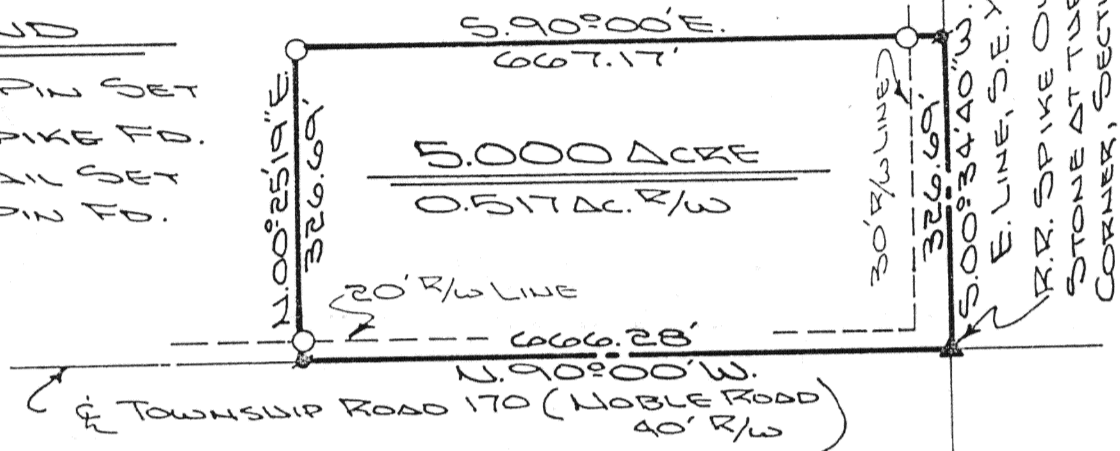 ND
PIN SET
PIKE FD.
AIL SET
PIN FD.
S.90º00'E.
667.17'
N.00º25'19"E.
326.69'
5.000 ACRE
0.517 AC. R/W
30' R/W LINE
326.69'
S.00º34'40"W.
E. LINE, S.E.
R.R. SPIKE
STONE AT THE
CORNER, SECTI
20' R/W LINE
666.28'
N.90º00'W.
℄ TOWNSHIP ROAD 170 (NOBLE ROAD)
40' R/W